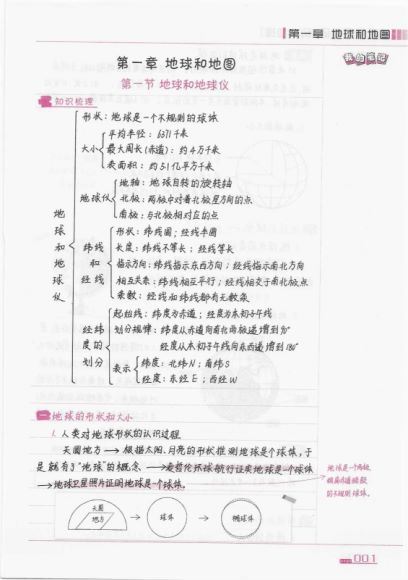 第一章 地球和地图
我的笔记
第一章 地球和地图
第一节 地球和地球仪
知识梳理
地球和地球仪
形状：地球是一个不规则的球体
大小
平均半径：6371千米
最大周长(赤道)：约4万千米
表面积：约5.1亿平方千米
地球仪
地轴：地球自转的旋转轴
北极：两极中对着北极星方向的点
南极：与北极相对应的点
纬线和经线
形状：纬线圈；经线半圆
长度：纬线不等长；经线等长
指示方向：纬线指示东西方向；经线指示南北方向
相互关系：纬线相互平行；经线相交于南北极点
条数：经线和纬线都有无数条
经纬度的划分
起始线：纬度为赤道；经度为本初子午线
划分规律：纬度从赤道向南北两极递增到90°
经度从本初子午线向东西递增到180°
表示
纬度：北纬N；南纬S
经度：东经E；西经W
一 地球的形状和大小
1. 人类对地球形状的认识过程
天圆地方→根据太阳、月亮的形状推测地球是个球体，于
是就有了“地球”的概念→麦哲伦环球航行证实地球是个球体
→地球卫星照片证明地球是个球体。
地球是一个两极
的不规则球体。
天圆
地方
球体
椭球体
001